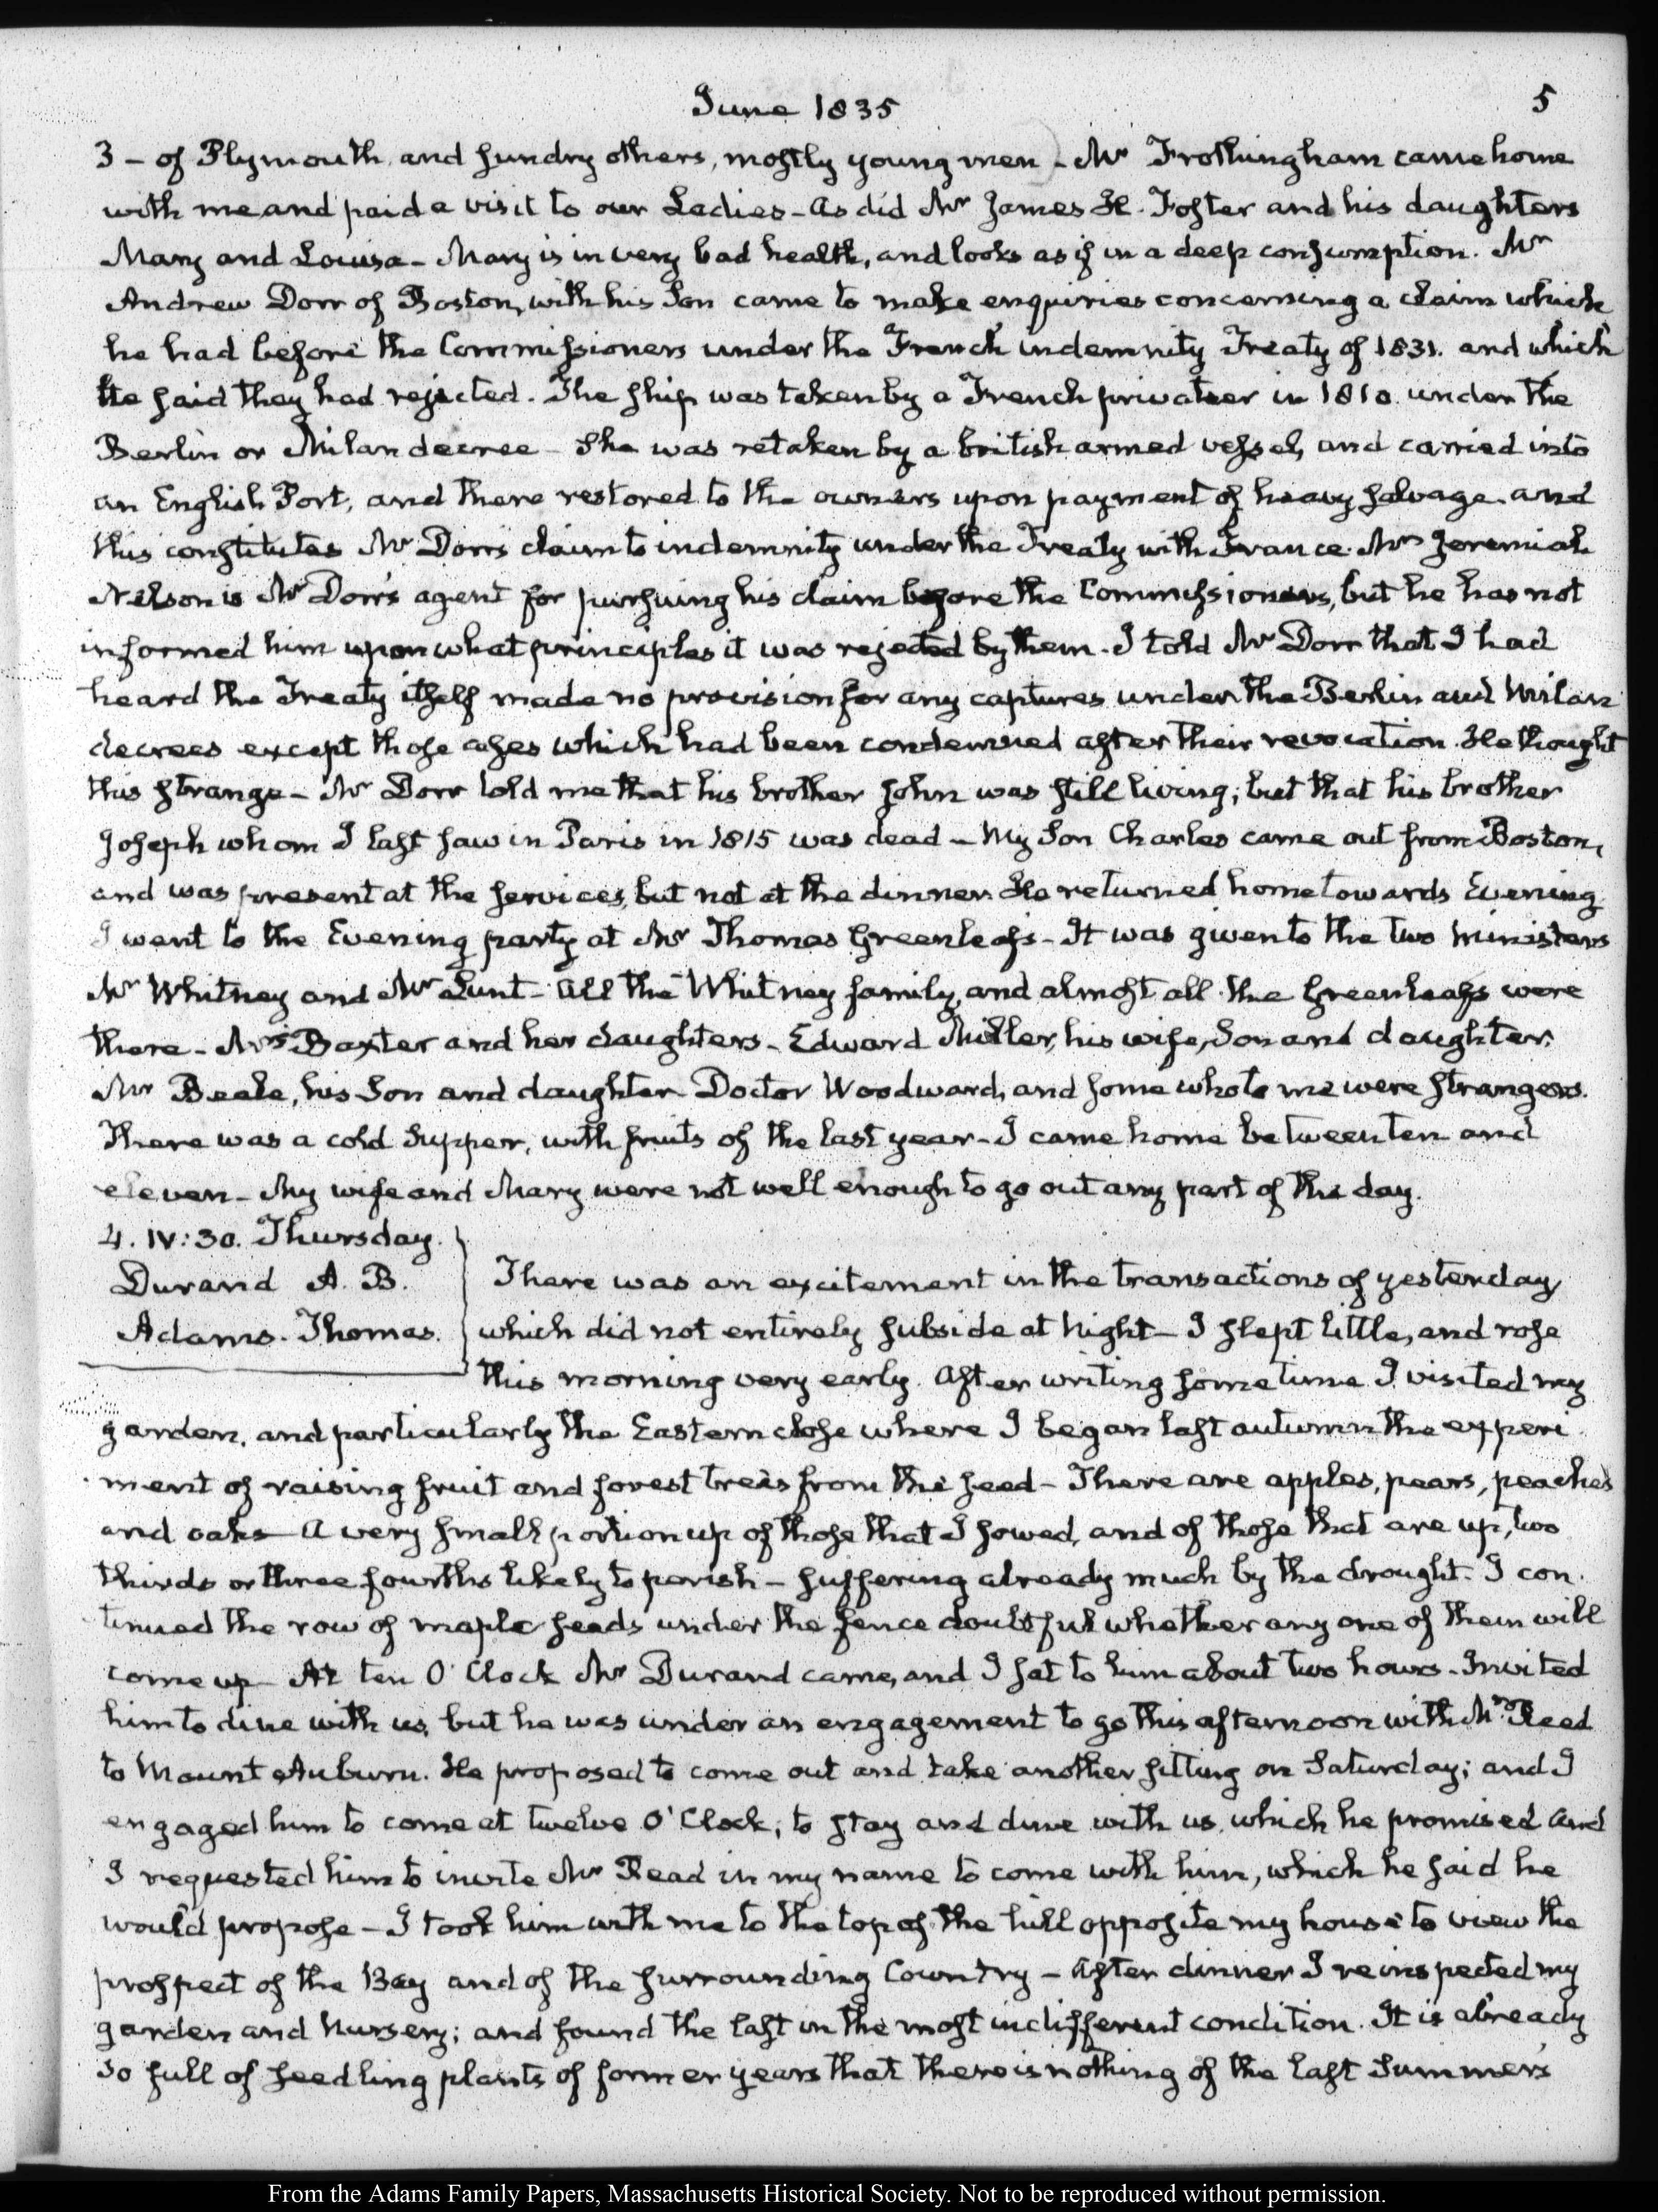 June 1835
5
3 - of Plymouth, and sundry others, mostly young men - Mr Frothingham came home
with me and paid a visit to our Ladies - as did Mr James H. Foster and his daughters
Mary and Louisa - Mary is in very bad health, and looks as if in a deep consumption. Mr
Andrew Dorr of Boston, with his Son came to make enquiries concerning a claim which
he had before the Commissioners under the French indemnity Treaty of 1831. and which
he said they had rejected. The ship was taken by a French privateer in 1810. under the
Berlin or Milan decree - She was retaken by a british armed vessel, and carried into
an English Port, and there restored to the owners upon payment of heavy salvage. and
this constitutes Mr Dorrs claim to indemnity under the Treaty with France. Mr Jeremiah
Nelson is Mr Dorr's agent for pursuing his claim before the Commissioners, but he has not
informed him upon what principles it was rejected by them. I told Mr Dorr that I had
heard the Treaty itself made no provision for any captures under the Berlin and Milan
decrees except those cases which had been condemned after their revocation. He thought
this strange - Mr Dorr told me that his brother John was still living; but that his brother
Joseph whom I last saw in Paris in 1815 was dead - My Son Charles came out from Boston,
and was present at the services, but not at the dinner. He returned home towards Evening
I went to the Evening party at Mr Thomas Greenleaf's - It was given to the two Ministers
Mr Whitney and Mr Lunt - All the Whitney family, and almost all the Greenleafs were
there - Mrs Baxter and her daughters - Edward Miller, his wife, Son and daughter.
Mr Beale, his Son and daughter Doctor Woodward, and some who to me were strangers.
There was a cold Supper, with fruits of the last year - I came home between ten and
eleven - My wife and Mary were not well enough to go out any part of the day.
4. IV:30. Thursday.
Durand A. B.
Adams. Thomas.
There was an excitement in the transactions of yesterday
which did not entirely subside at Night - I slept little, and rose
this morning very early. After writing some time I visited my
garden, and particularly the Eastern close where I began last autumn the experi
ment of raising fruit and forest trees from the seed - There are apples, pears, peaches
and oaks - A very small portion up of those that I sowed, and of those that are up, two
thirds or three fourths likely to perish - suffering already much by the drought. I con
tinued the row of maple seeds under the fence doubtful whether any one of them will
come up - At ten O'Clock Mr Durand came, and I sat to him about two hours - Invited
him to dine with us, but he was under an engagement to go this afternoon with Mr Reed
to Mount Auburn. He proposed to come out and take another sitting on Saturday; and I
engaged him to come at twelve O'Clock; to stay and dine with us, which he promised and
I requested him to invite Mr Read in my name to come with him, which he said he
would propose - I took him with me to the top of the hill opposite my house to view the
prospect of the Bay and of the surrounding Country - After dinner I reinspected my
garden and Nursery; and found the last in the most indifferent condition. It is already
so full of seedling plants of former years that there is nothing of the last Summer's
From the Adams Family Papers, Massachusetts Historical Society. Not to be reproduced without permission.